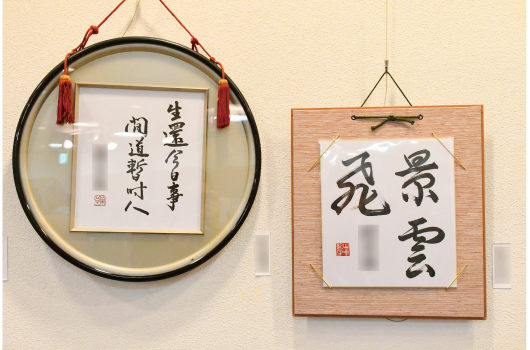 生還今日事
間道暫時人
景雲
飛